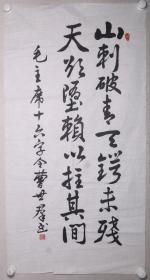 山刺破青天锷未残
天欲墮賴以拄其間
毛主席十六字令曹世群书